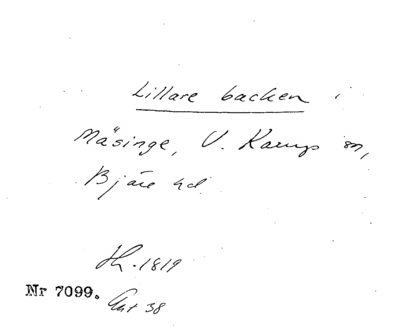 Lillare backen i
Mäsinge, V. Karups sn,
Bjäre hd
Jh. 1819
Nr 7099. Ant 38